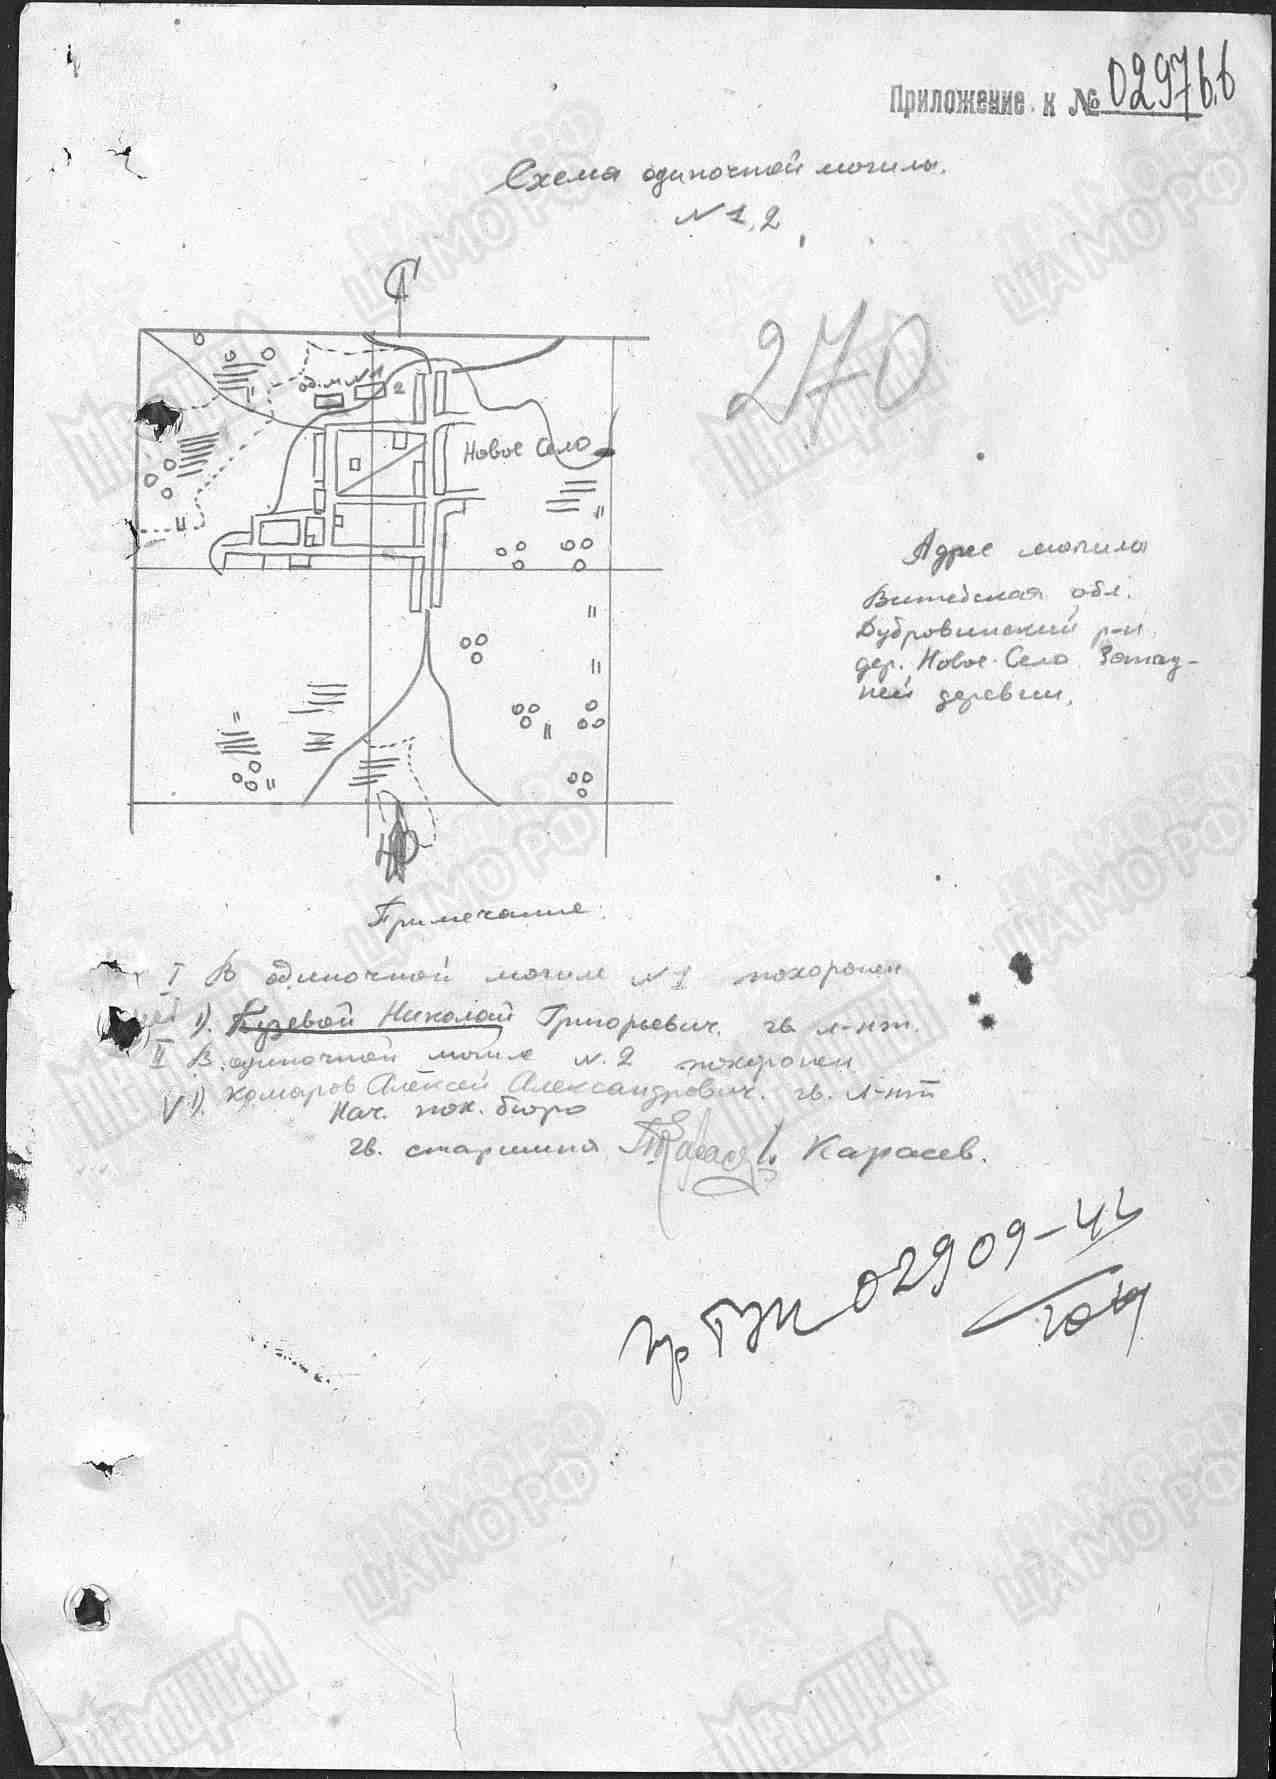 Приложение к № 02976.в
Схема одиночной могилы.
N 1, 2
С
270
од. м. N 1
2
Новое Село
Адрес могилы
Витебская обл.
Дубровинский р-н
дер. Новое-Село Запад-
ней деревни,
Ю
Примечание:
I В одиночной могиле N 1 похоронен
1). Гузевой Николай Григорьевич. гв. л-нт.
II В одиночной могиле N. 2 похоронен
V 1). Комаров Алексей Александрович. гв. л-нт
Нач. пох. бюро
гв. старшина Карасев.
02909-43
ЦАМО РФ
Мемориал